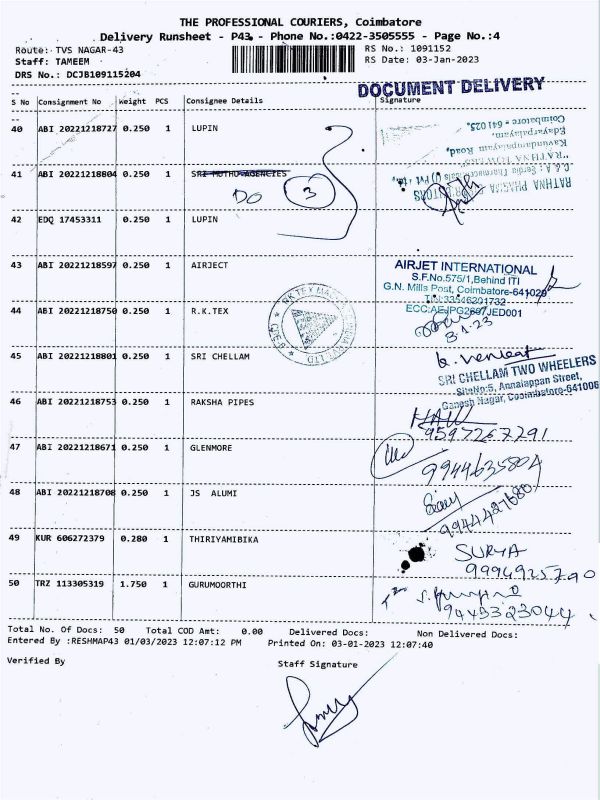 THE PROFESSIONAL COURIERS, Coimbatore
Delivery Runsheet - P43 - Phone No.:0422-3505555 - Page No.:4
Route: TVS NAGAR-43
RS No.: 1091152
Staff: TAMEEM
RS Date: 03-Jan-2023
DRS No.: DCJB109115204
DOCUMENT DELIVERY
S No Consignment No Weight PCS Consignee Details Signature
40 ABI 20221218727 0.250 1 LUPIN
Coimbatore - 641 025.
Edayarpalayam,
Kavundampalayam Road,
41 ABI 20221218804 0.250 1 SRI MUTHU AGENCIES
DO 3
42 EDQ 17453311 0.250 1 LUPIN
43 ABI 20221218597 0.250 1 AIRJECT
AIRJET INTERNATIONAL
S.F.No.575/1,Behind ITI
G.N. Mills Post, Coimbatore-641029
44 ABI 20221218750 0.250 1 R.K.TEX
3-1-23
45 ABI 20221218801 0.250 1 SRI CHELLAM
k. Venkat
SRI CHELLAM TWO WHEELERS
Site No:5, Annaiappan Street,
Ganesh Nagar, Coimbatore-641006
46 ABI 20221218753 0.250 1 RAKSHA PIPES
9597267791
47 ABI 20221218671 0.250 1 GLENMORE
9944635804
48 ABI 20221218708 0.250 1 JS ALUMI
9944427680
49 KUR 606272379 0.280 1 THIRIYAMIBIKA
SURYA
9994925790
50 TRZ 113305319 1.750 1 GURUMOORTHI
9443323044
Total No. Of Docs: 50 Total COD Amt: 0.00 Delivered Docs: Non Delivered Docs:
Entered By :RESHMAP43 01/03/2023 12:07:12 PM Printed On: 03-01-2023 12:07:40
Verified By
Staff Signature